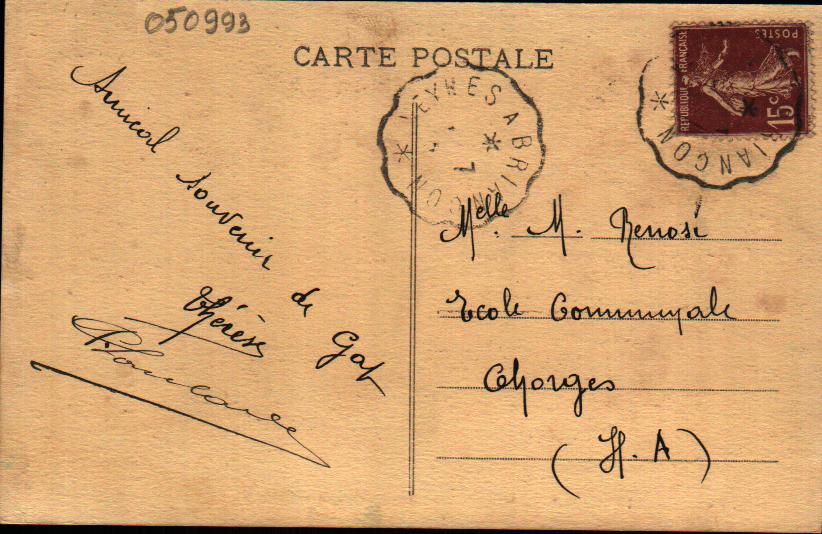 050993
CARTE POSTALE
Amical souvenir de Gap
Thérèse
VEYNES A BRIANCON
7
REPUBLIQUE FRANÇAISE
POSTES
15c
BRIANCON
Melle. M. Renosi
Ecole Communale
Chorges
(H. A)